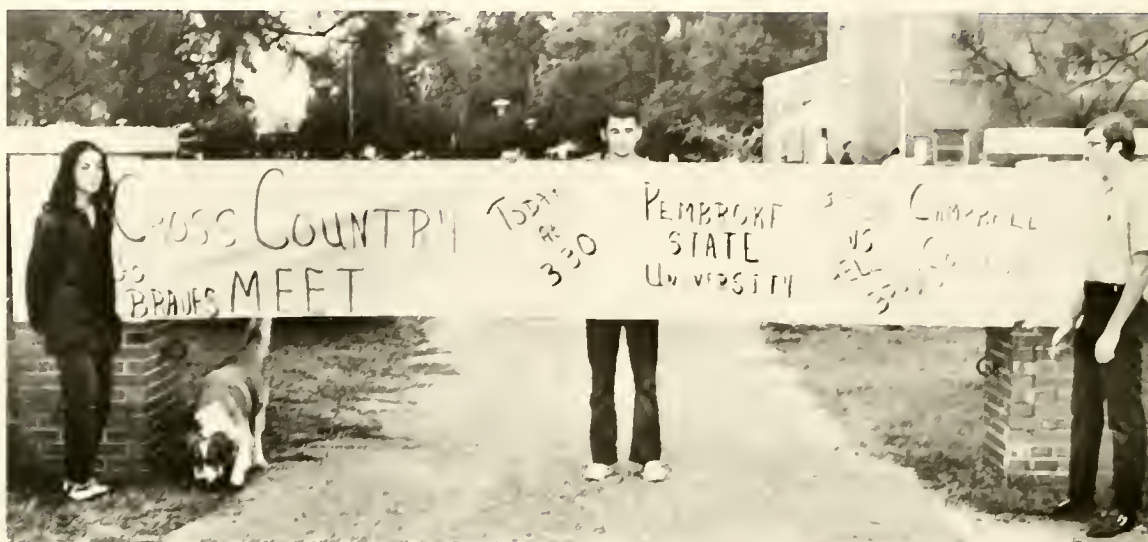 CROSS COUNTRY
BRAVES MEET
TODAY
AT
3:30
PEMBROKE
STATE
UNIVERSITY
VS
CAMPBELL